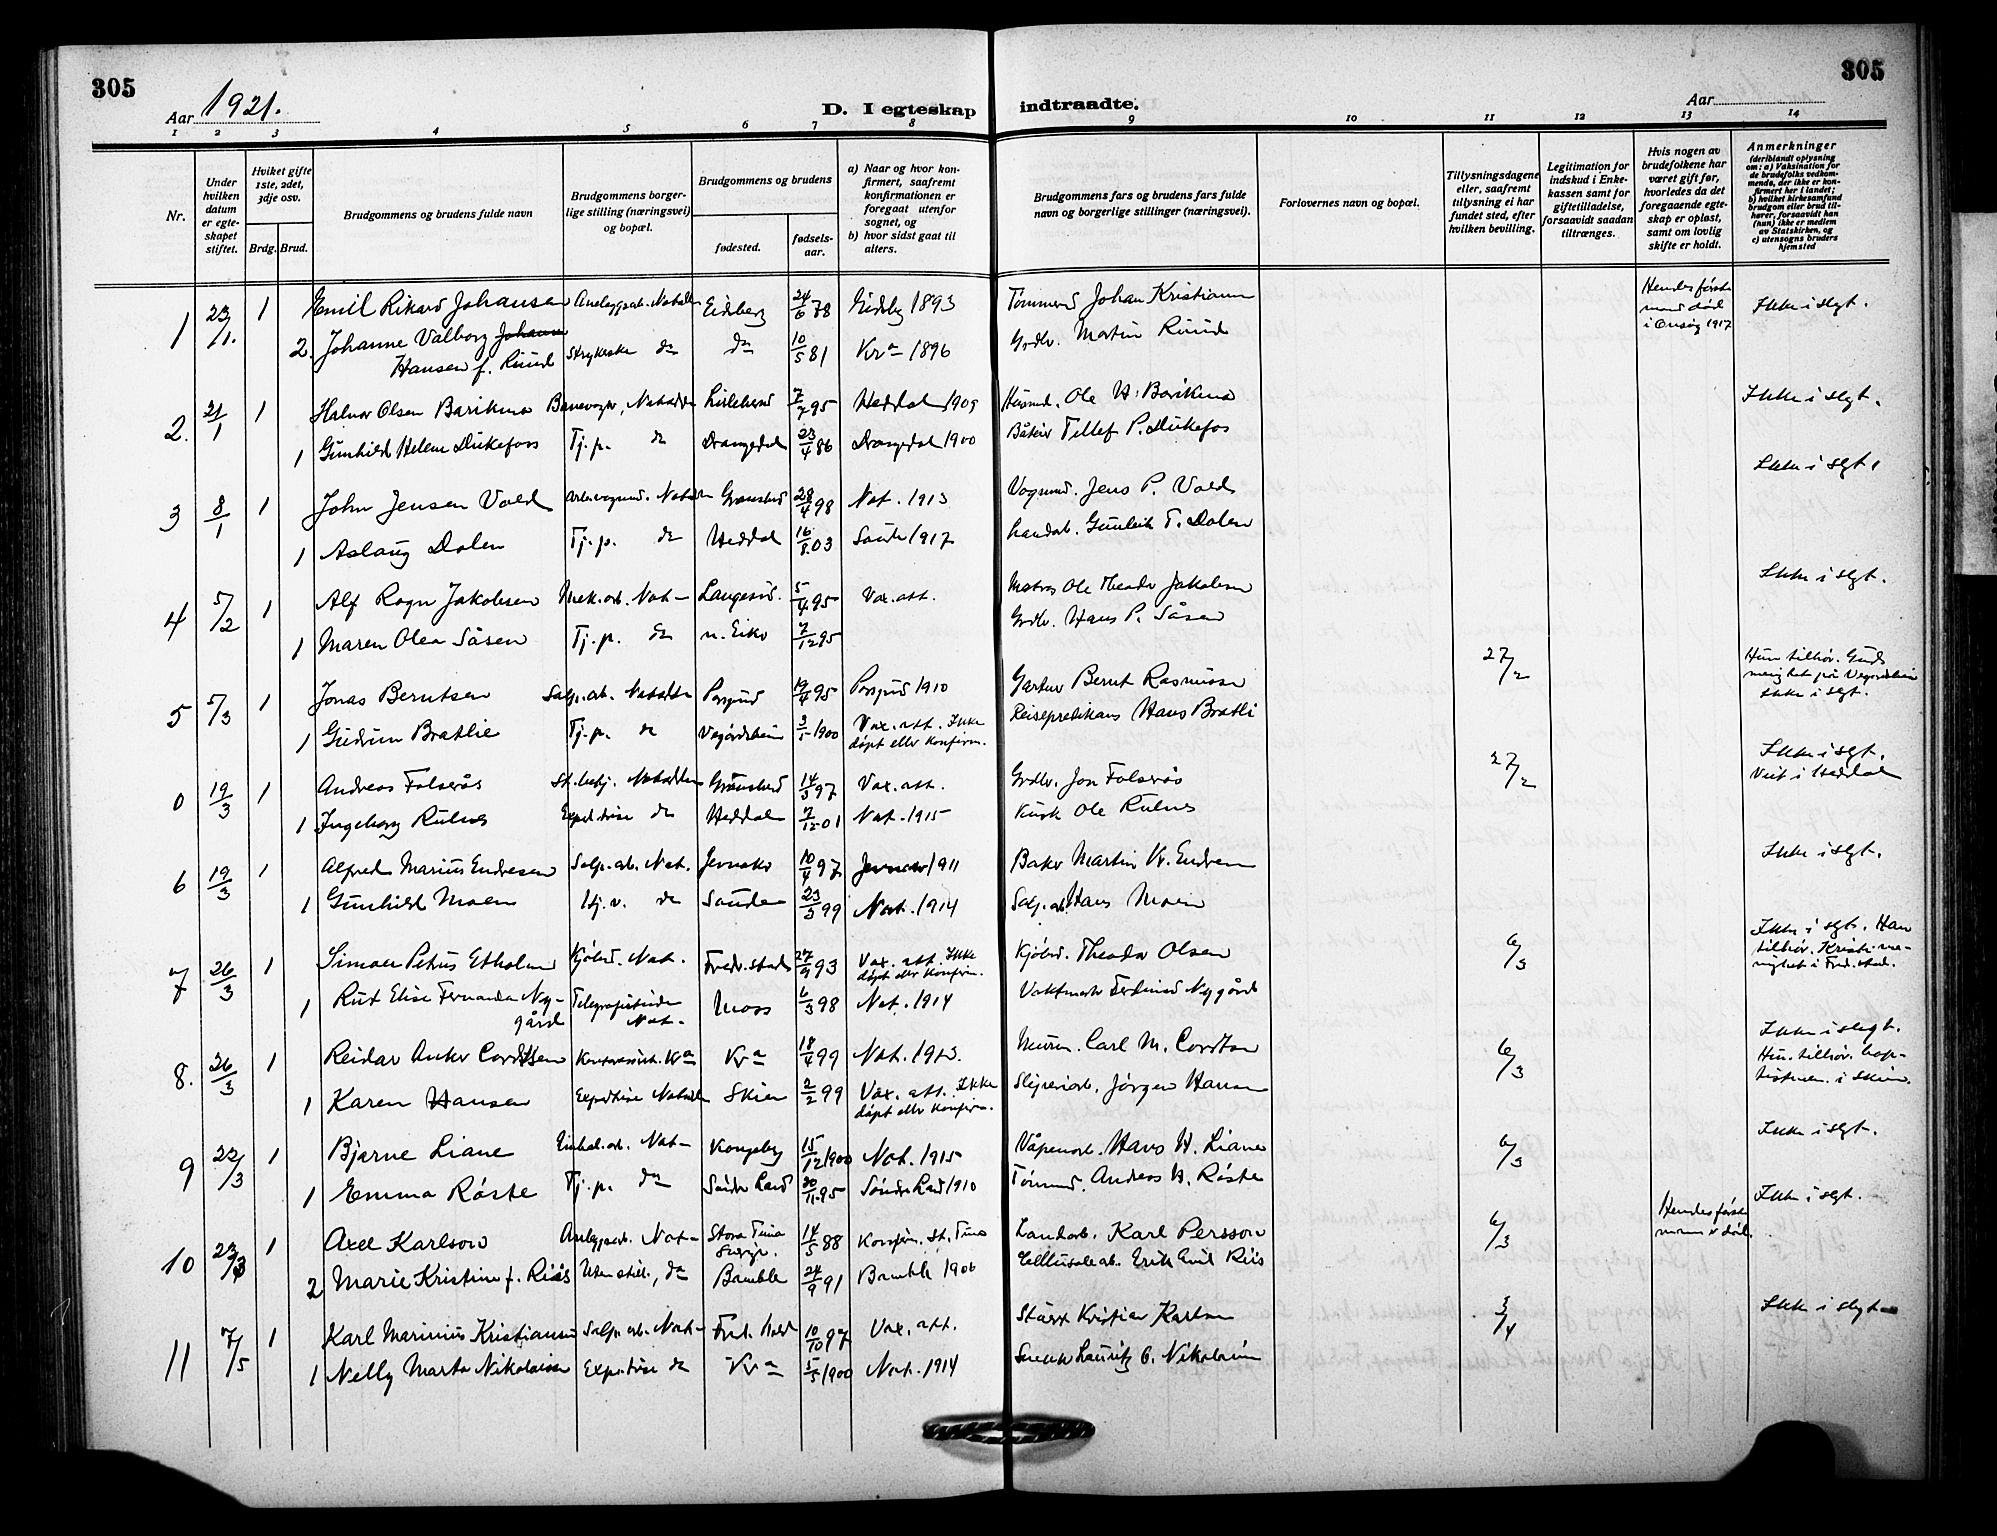 305
305
Aar 1921.
D. I egteskap indtraadte.
Aar
1 2 3 4 5 6 7 8 9 10 11 12 13 14
Nr.
Under hvilken datum er egteskapet stiftet.
Hvilket gifte 1ste, 2det, 3dje osv.
Brdg. Brud.
Brudgommens og brudens fulde navn
Brudgommens borgerlige stilling (næringsvei) og bopæl.
Brudgommens og brudens
fødested.
fødselsaar.
a) Naar og hvor konfirmert, saafremt konfirmationen er foregaat utenfor sognet, og
b) hvor sidst gaat til alters.
Brudgommens fars og brudens fars fulde navn og borgerlige stillinger (næringsvei).
Forlovernes navn og bopæl.
Tillysningsdagene eller, saafremt tillysning ei har fundet sted, efter hvilken bevilling.
Legitimation for indskud i Enkekassen samt for giftetilladelse, forsaavidt saadan tiltrænges.
Hvis nogen av brudefolkene har været gift før, hvorledes da det foregaaende egteskap er opløst, samt om lovlig skifte er holdt.
Anmerkninger
(deriblandt oplysning om: a) Vaksination for de brudefolks vedkommende, der ikke er konfirmert her i landet; b) hvilket kirkesamfund brudgom eller brud tilhører, forsaavidt han (hun) ikke er medlem av Statskirken, og c) utensogns bruders hjemsted
1 23/1. 1 Emil Rikard Johansen Anlegsarb. Notodden Eidsberg 24/6 78 Eidsbg 1893 Tømmerm. Johan Kristiansen Hendes første mand død i Onsøy 1917 Ikke i slegt.
2. Johanne Valborg Hansen f. Ruud Strykerske do do 10/5 81 Kra 1896 Grdbr. Martin Ruud
2. 21/1 1 Halvor Olsen Barikmo Banevogter, Notodden Lisleherad 7/7 95 Heddal 1909 Husmd. Ole H. Barikmo Ikke i slegt.
1 Gunhild Helene Dukefoss Tj.p. do Drangedal 23/4 86 Drangedal 1900 Tellef P. Dukefos
3 8/1 1 John Jensen Vold Notodden Gransherd 28/4 98 Not. 1913 Vognmd. Jens P. Vold Ikke i slgt.
1 Aslaug Dalen Tj.p. do Heddal 16/8 03 Saude 1917 Landarb. Gunleik T. Dalen
4 5/2 1 Alf Ragn Jakobsen Mek.arb. Not- Langesund. 5/4 95 Vax.att. Matros Ole Theodor Jakobsen Ikke i slgt.
1 Maren Olea Såsen Tj.p. do n. Eiko 7/12 95 Grdbr. Hans P. Såsen
5 5/3 1 Jonas Berntsen Salp.arb. Notodden Porsgrund 19/4 95 Porsgrund 1910 Gartner Bernt Rasmussen 27/2 Hun tilhør. Guds menighet på Vegårdshein Ikke i slgt.
1 Gudrun Bratlie Tj.p. do Vegårdshein 3/1 1900 Vax. att. Ikke døpt eller konfirm. Reisepredikans Hans Bratli
0 19/3 1 Andreas Folserås Notodden Gransherd 14/3 97 Vax.att. Grdbr. Jon Folserås 27/2 Ikke i slgt. Viet i Heddal
1 Ingeborg Rulnes Expeditrise do Heddal 7/12 01 Not. 1915 Kusk Ole Rulnes
6 19/3 1 Alfred Marius Endresen Salp.arb. Not. Jevnaker 10/4 97 Jevnaker 1911 Baker Martin Kr. Endresen Ikke i slgt.
1 Gunhild Moen do Saude 23/3 99 Not. 1914 Salp.arb. Hans Moen
7 26/3 1 Simon Petrus Etholm Kjøbmd. Not. Fredr.stad 27/9 93 Vax. att. Ikke døpt eller konfirm. Kjøbmd. Theodor Olsen 6/3 Ikke i slgt. Han tilhør. Kristi menighet i Fred.stad.
1 Rut Elise Fernanda Nygård Telegrafistinde Not. Moss 6/3 98 Not. 1914 Vaktmester Ferdinand Nygård
8. 26/3 1 Reidar Anker Kontorassist. Kra Kra 18/4 99 Not. 1913. Murm. Carl M. 6/3 Ikke i slegt. Hun tilhør. baptistmen. i Skien.
1 Karen Hansen Expeditrise Notodden Skien 2/2 99 Vax. att. Ikke døpt eller konfirm. Sliperiarb. Jörgen Hansen
9 22/3 1 Bjarne Liane Not- Kongsberg 15/12 1900 Not. 1915 Våpenarb. Hans H. Liane 6/3 Ikke i slgt.
1 Emma Røste Tj.p. do Søndre Land 20/11 95 Søndre Land 1910 Tømmermd. Andreas H. Røste
10 23/3 1 Axel Karlson Anlegsarb. Not- Stora Tuna Sverge. 14/5 88 Konfirm. St. Tuna Landarb. Karl Persson 6/3 Hendes første mann er død. Ikke i slgt.
2 Marie Kristine f. Riis Uten still., do Bamble 24/9 91 Bamble 1906 Cellulosearb. Erik Emil Riis
11 7/5 1 Karl Marinius Kristiansen Salp.arb. Not- Fred.hald 10/10 97 Vax. att. Kristian Karlsen 3/4 Ikke i slgt.
1 Nelly Marta Nikolaisen Expeditrise do Kra 5/5 1900 Not. 1914 Snekker Lauritz C. Nikolaisen